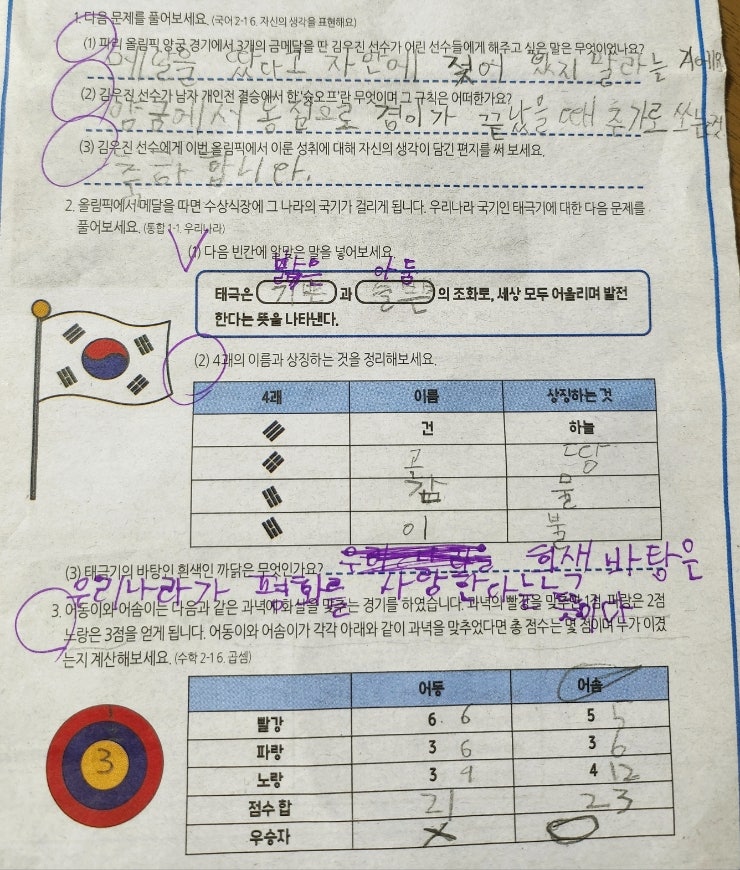 1. 다음 문제를 풀어보세요. (국어 2-1 6. 자신의 생각을 표현해요)
(1) 파리 올림픽 양궁 경기에서 3개의 금메달을 딴 김우진 선수가 어린 선수들에게 해주고 싶은 말은 무엇이었나요?
메달을 땄다고 자만에 젖어 있지 말라는
(2) 김우진 선수가 남자 개인전 결승에서 한 '슛오프'란 무엇이며 그 규칙은 어떠한가요?
양궁에서 동점으로 경이가 끝났을 때 추가로 쏘는것
(3) 김우진 선수에게 이번 올림픽에서 이룬 성취에 대해 자신의 생각이 담긴 편지를 써 보세요.
축하합니다.
2. 올림픽에서 메달을 따면 수상식장에 그 나라의 국기가 걸리게 됩니다. 우리나라 국기인 태극기에 대한 다음 문제를
풀어보세요. (통합 1-1. 우리나라)
(1) 다음 빈칸에 알맞은 말을 넣어보세요.
밝음 아둠
태극은 과 의 조화로, 세상 모두 어울리며 발전
한다는 뜻을 나타낸다.
(2) 4괘의 이름과 상징하는 것을 정리해보세요.
4괘 이름 상징하는 것
건 하늘
곤 땅
감 물
이 불
(3) 태극기의 바탕인 흰색인 까닭은 무엇인가요? 흰색 바탕은
우리나라가 평화를 사랑한다는 뜻이다
3. 어동이와 어솜이는 다음과 같은 과녁에 화살을 맞추는 경기를 하였습니다. 과녁의 빨강을 맞추면 1점, 파랑은 2점
노랑은 3점을 얻게 됩니다. 어동이와 어솜이가 각각 아래와 같이 과녁을 맞추었다면 총 점수는 몇 점이며 누가 이겼
는지 계산해보세요. (수학 2-1 6. 곱셈)
어동 어솜
빨강 6 6 5 5
파랑 3 6 3 6
노랑 3 9 4 12
점수 합 21 23
우승자 X O
1
3